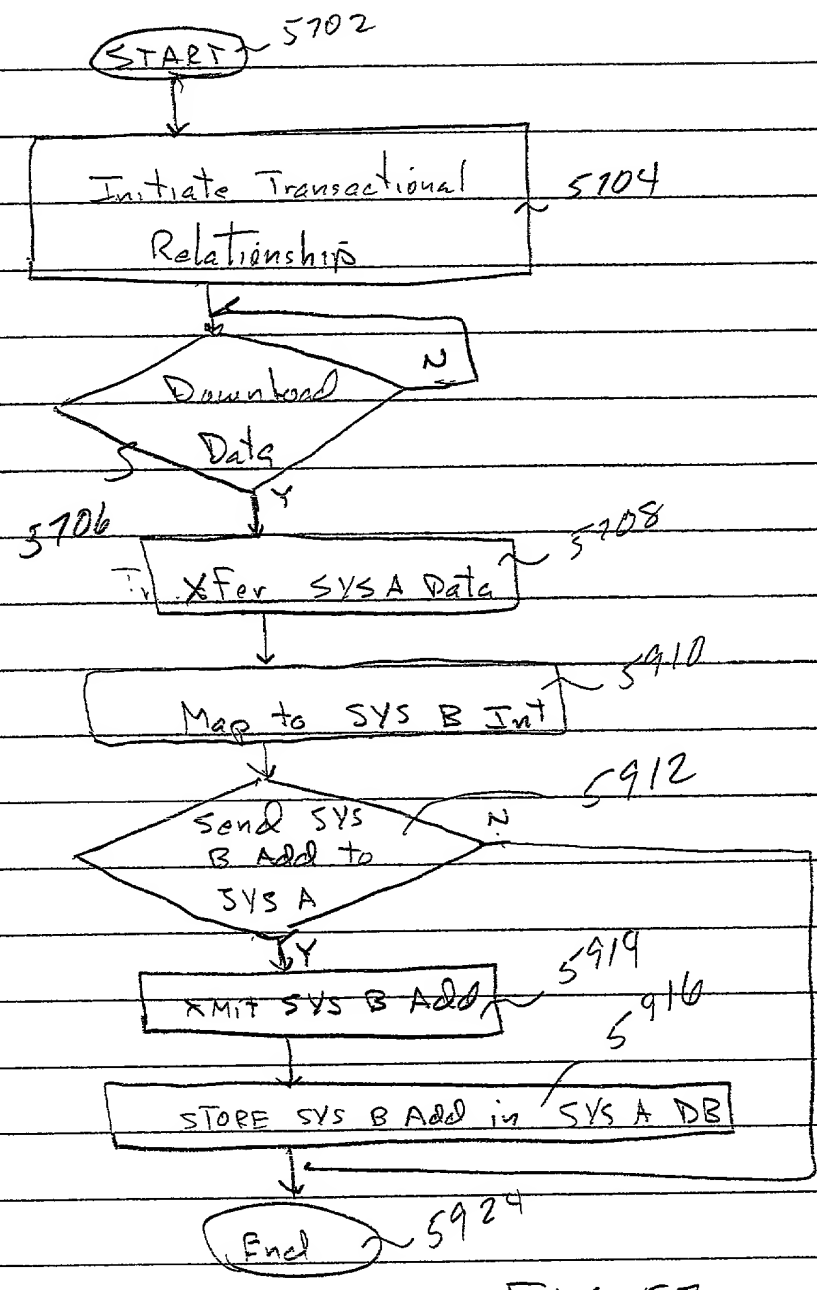 START 5702
Initiate Transactional 5704
Relationship
N
Download
Data
Y
5706
5708
Xfer SYS A Data
5910
Map to SYS B Int
5912
Send SYS N
B Add to
SYS A
Y
5914
XMIT SYS B Add
5916
STORE SYS B Add in SYS A DB
End 5924